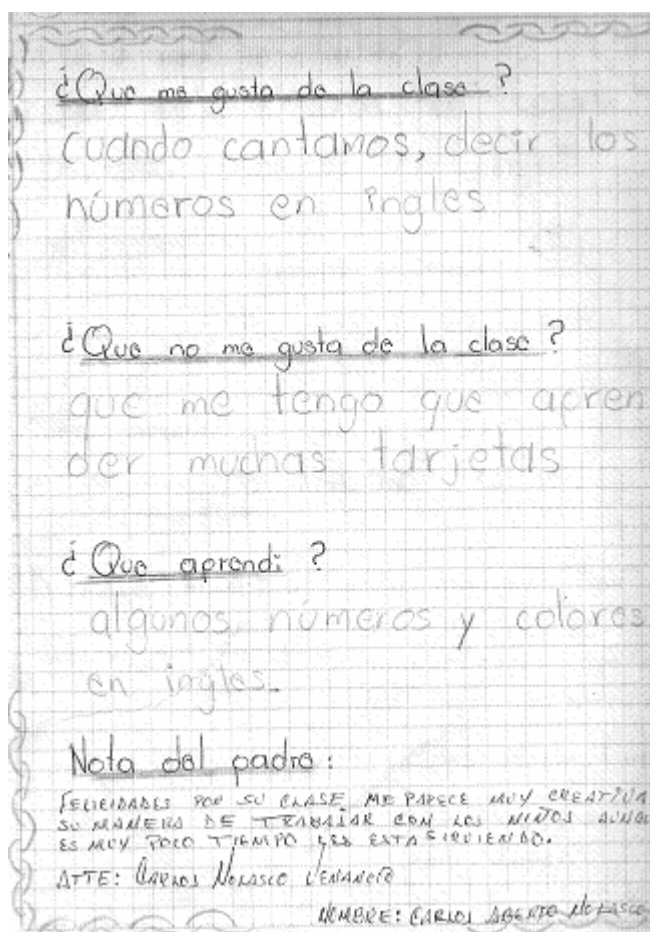 ¿Que me gusta de la clase?
Cuando cantamos, decir los
números en ingles
¿Que no me gusta de la clase?
que me tengo que apren
der muchas tarjetas
¿Que aprendi?
algunos números y colores
en ingles.
Nota del padre:
FELICIDADES POR SU CLASE ME PARECE MUY CREATIVA
SU MANERA DE TRABAJAR CON LOS NIÑOS AUNQU
ES MUY POCO TIEMPO LES ESTA SIRVIENDO.
ATTE: CARLOS NOLASCO VENANCIO
NOMBRE: CARLOS ABERTO NOLASCO